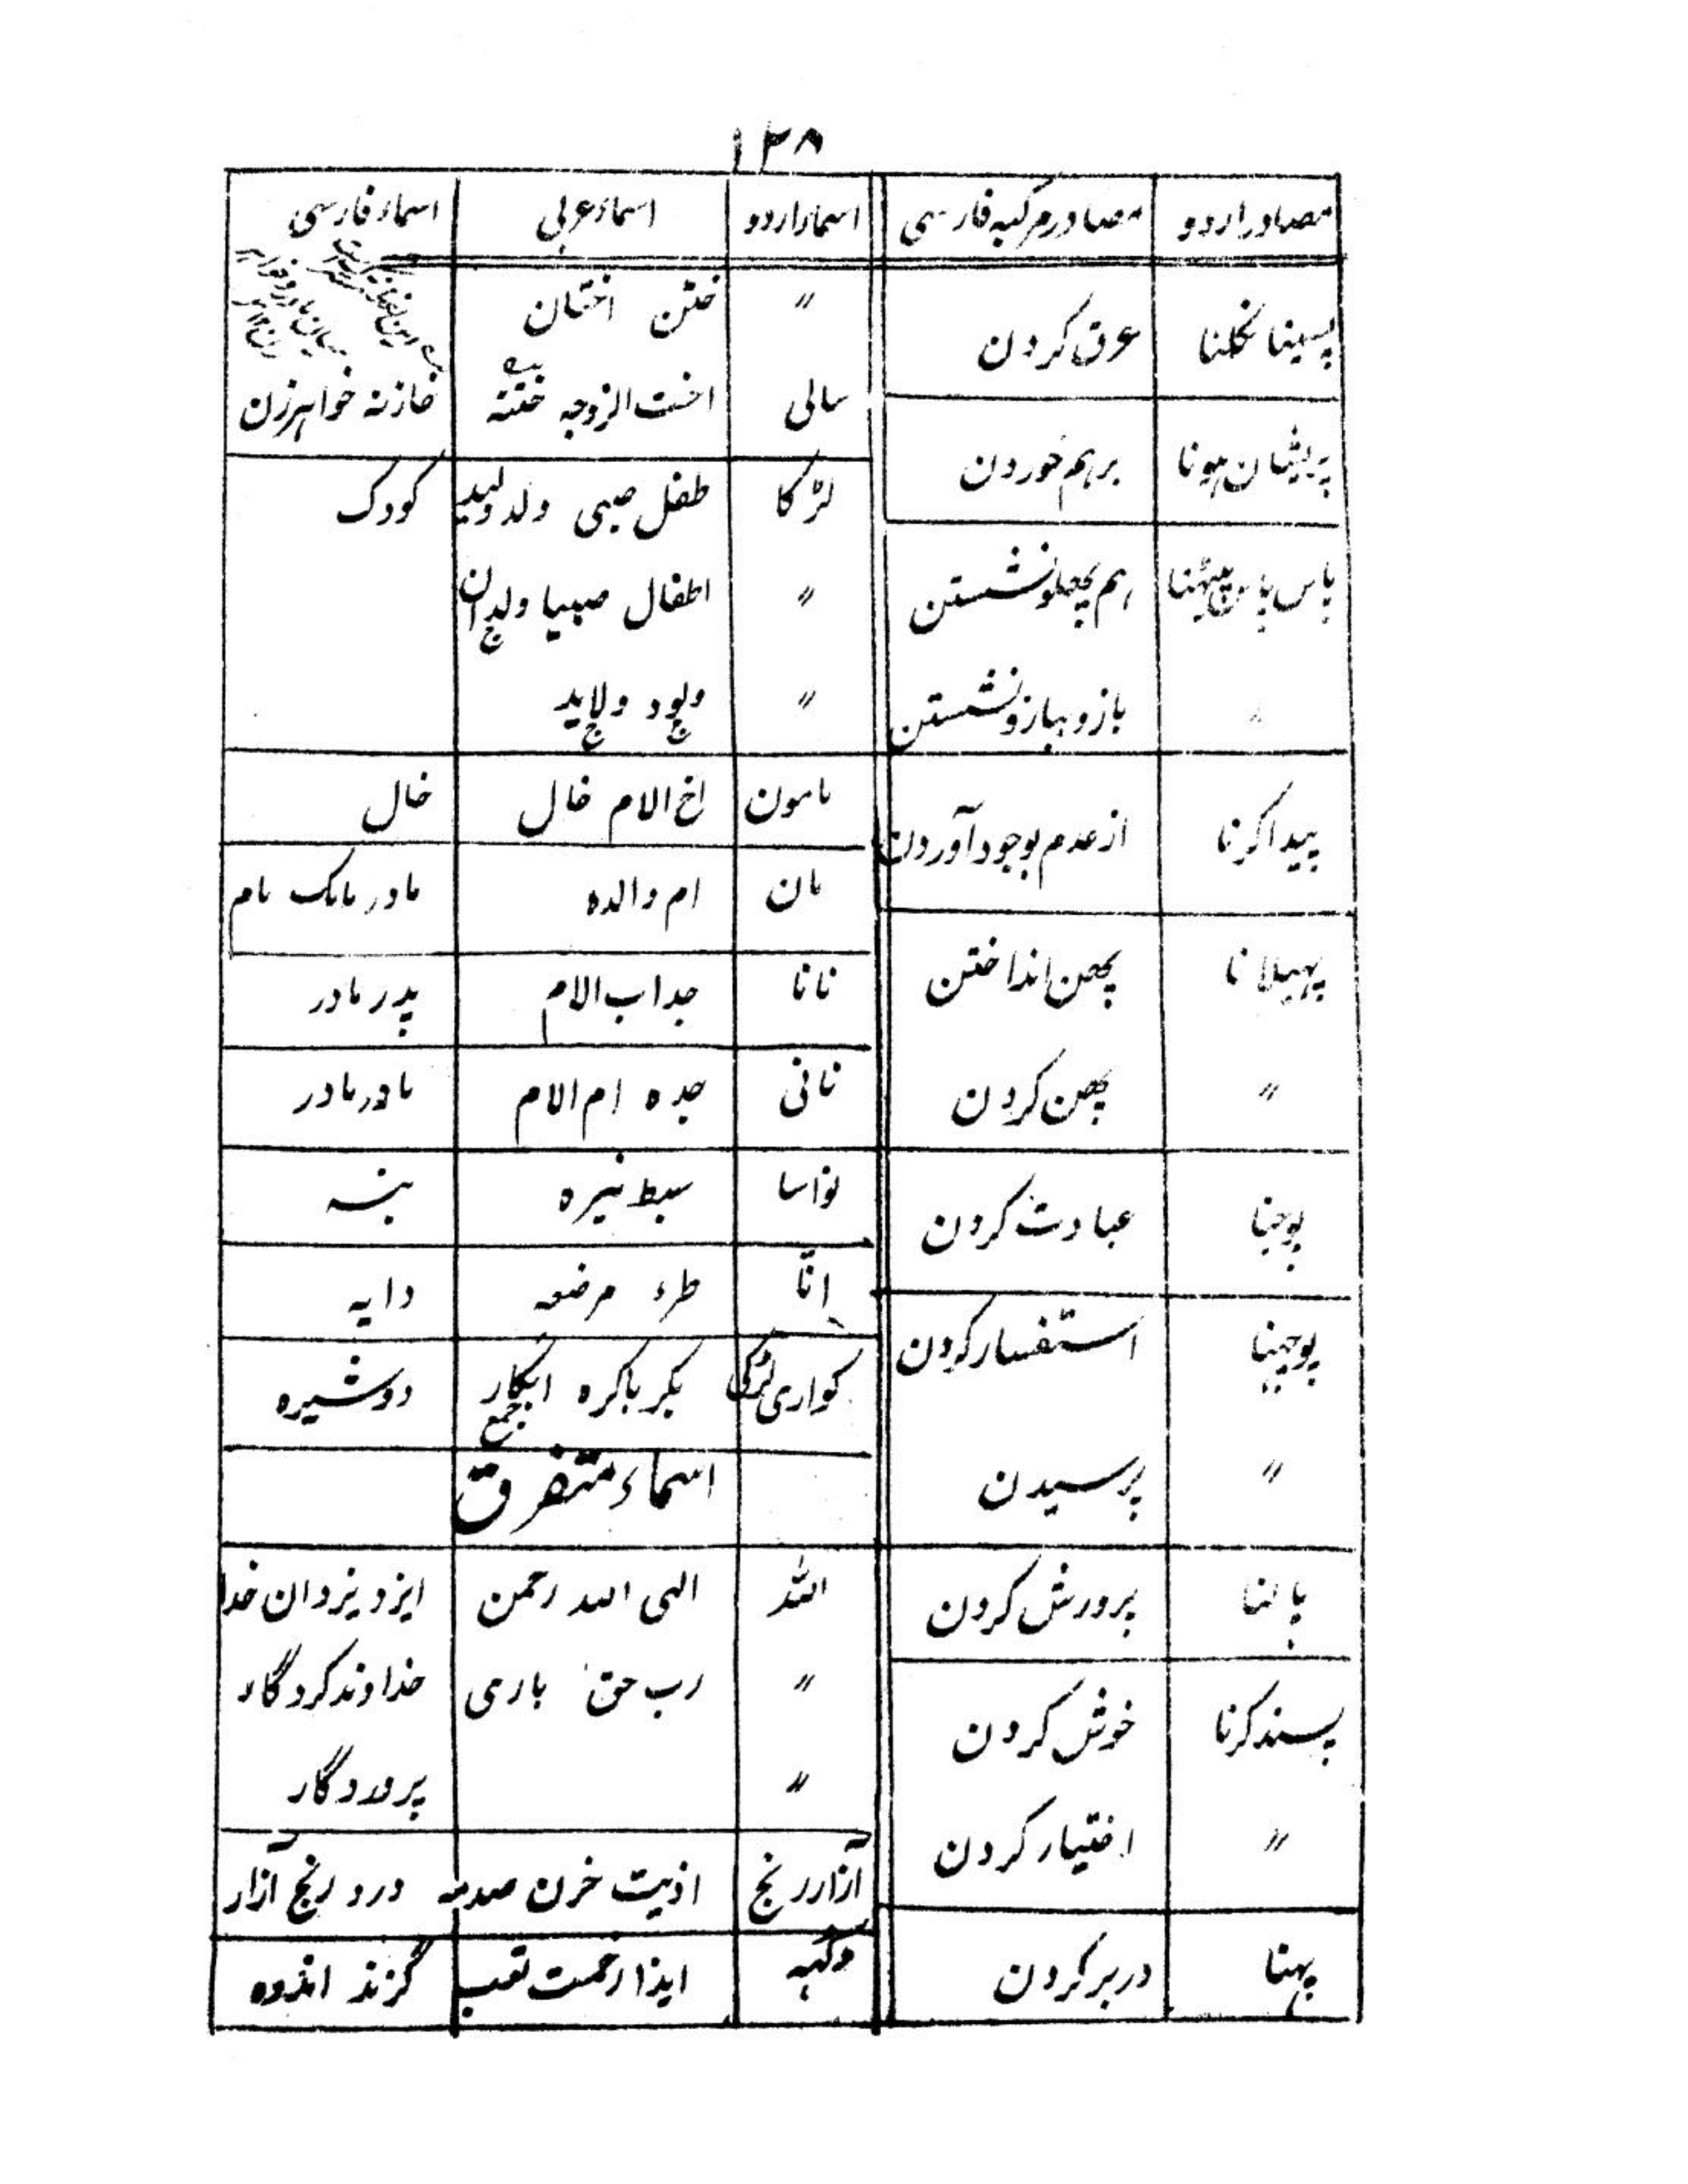 ۱۲۸
مصادر اردو	مصادر مرکبه فارسی	اسماء اردو	اسماء عربی	اسماء فارسی
پسینا نکلنا	عرق کردن
پریشان ہونا	برہم خوردن
پاس پاس بیٹھنا	ہم پہلو نشستن
〃	بازو ببازو نشستن
پیدا کرنا	از عدم بوجود آوردن
پہیلانا	پہن انداختن
〃	پہن کردن
پوجنا	عبادت کردن
پوچھنا	استفسار کردن
〃	پرسیدن
پالنا	پرورش کردن
پسند کرنا	خوش کردن
〃	اختیار کردن
پہنا	دربر کردن
〃	ختن اختان
سالی	اخت الزوجہ ختنہ	خازنہ خواہرزن
لڑکا	طفل صبی ولد ولید	کودک
〃	اطفال صبیا ولدان
〃	ولود ولاید
مامون	اخ الام خال	خال
مان	ام والدہ	مادر مامک مام
نانا	جد اب الام	پدر مادر
نانی	جدہ ام الام	مادر مادر
نواسا	سبط نبیرہ
انّا	مرضعہ	دایہ
کواری لڑکی	بکر باکرہ ابکار جمع	دوشیزہ
اسماء متفرق
اللہ	الہی اللہ رحمن	ایزد یزدان خدا
〃	رب حق باری	خداوند کردگار
〃	پروردگار
آزار رنج	اذیت حزن صدمہ	درد رنج آزار
دکہہ	ایذا زحمت تعب	گزند اندوہ